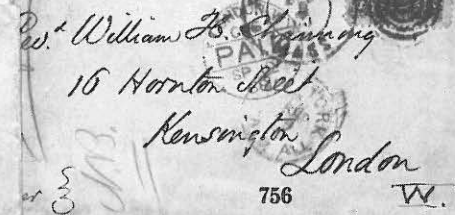 Revd. William H. Channing
PAI
16 Hornton Street
Kensington
London
W.
756